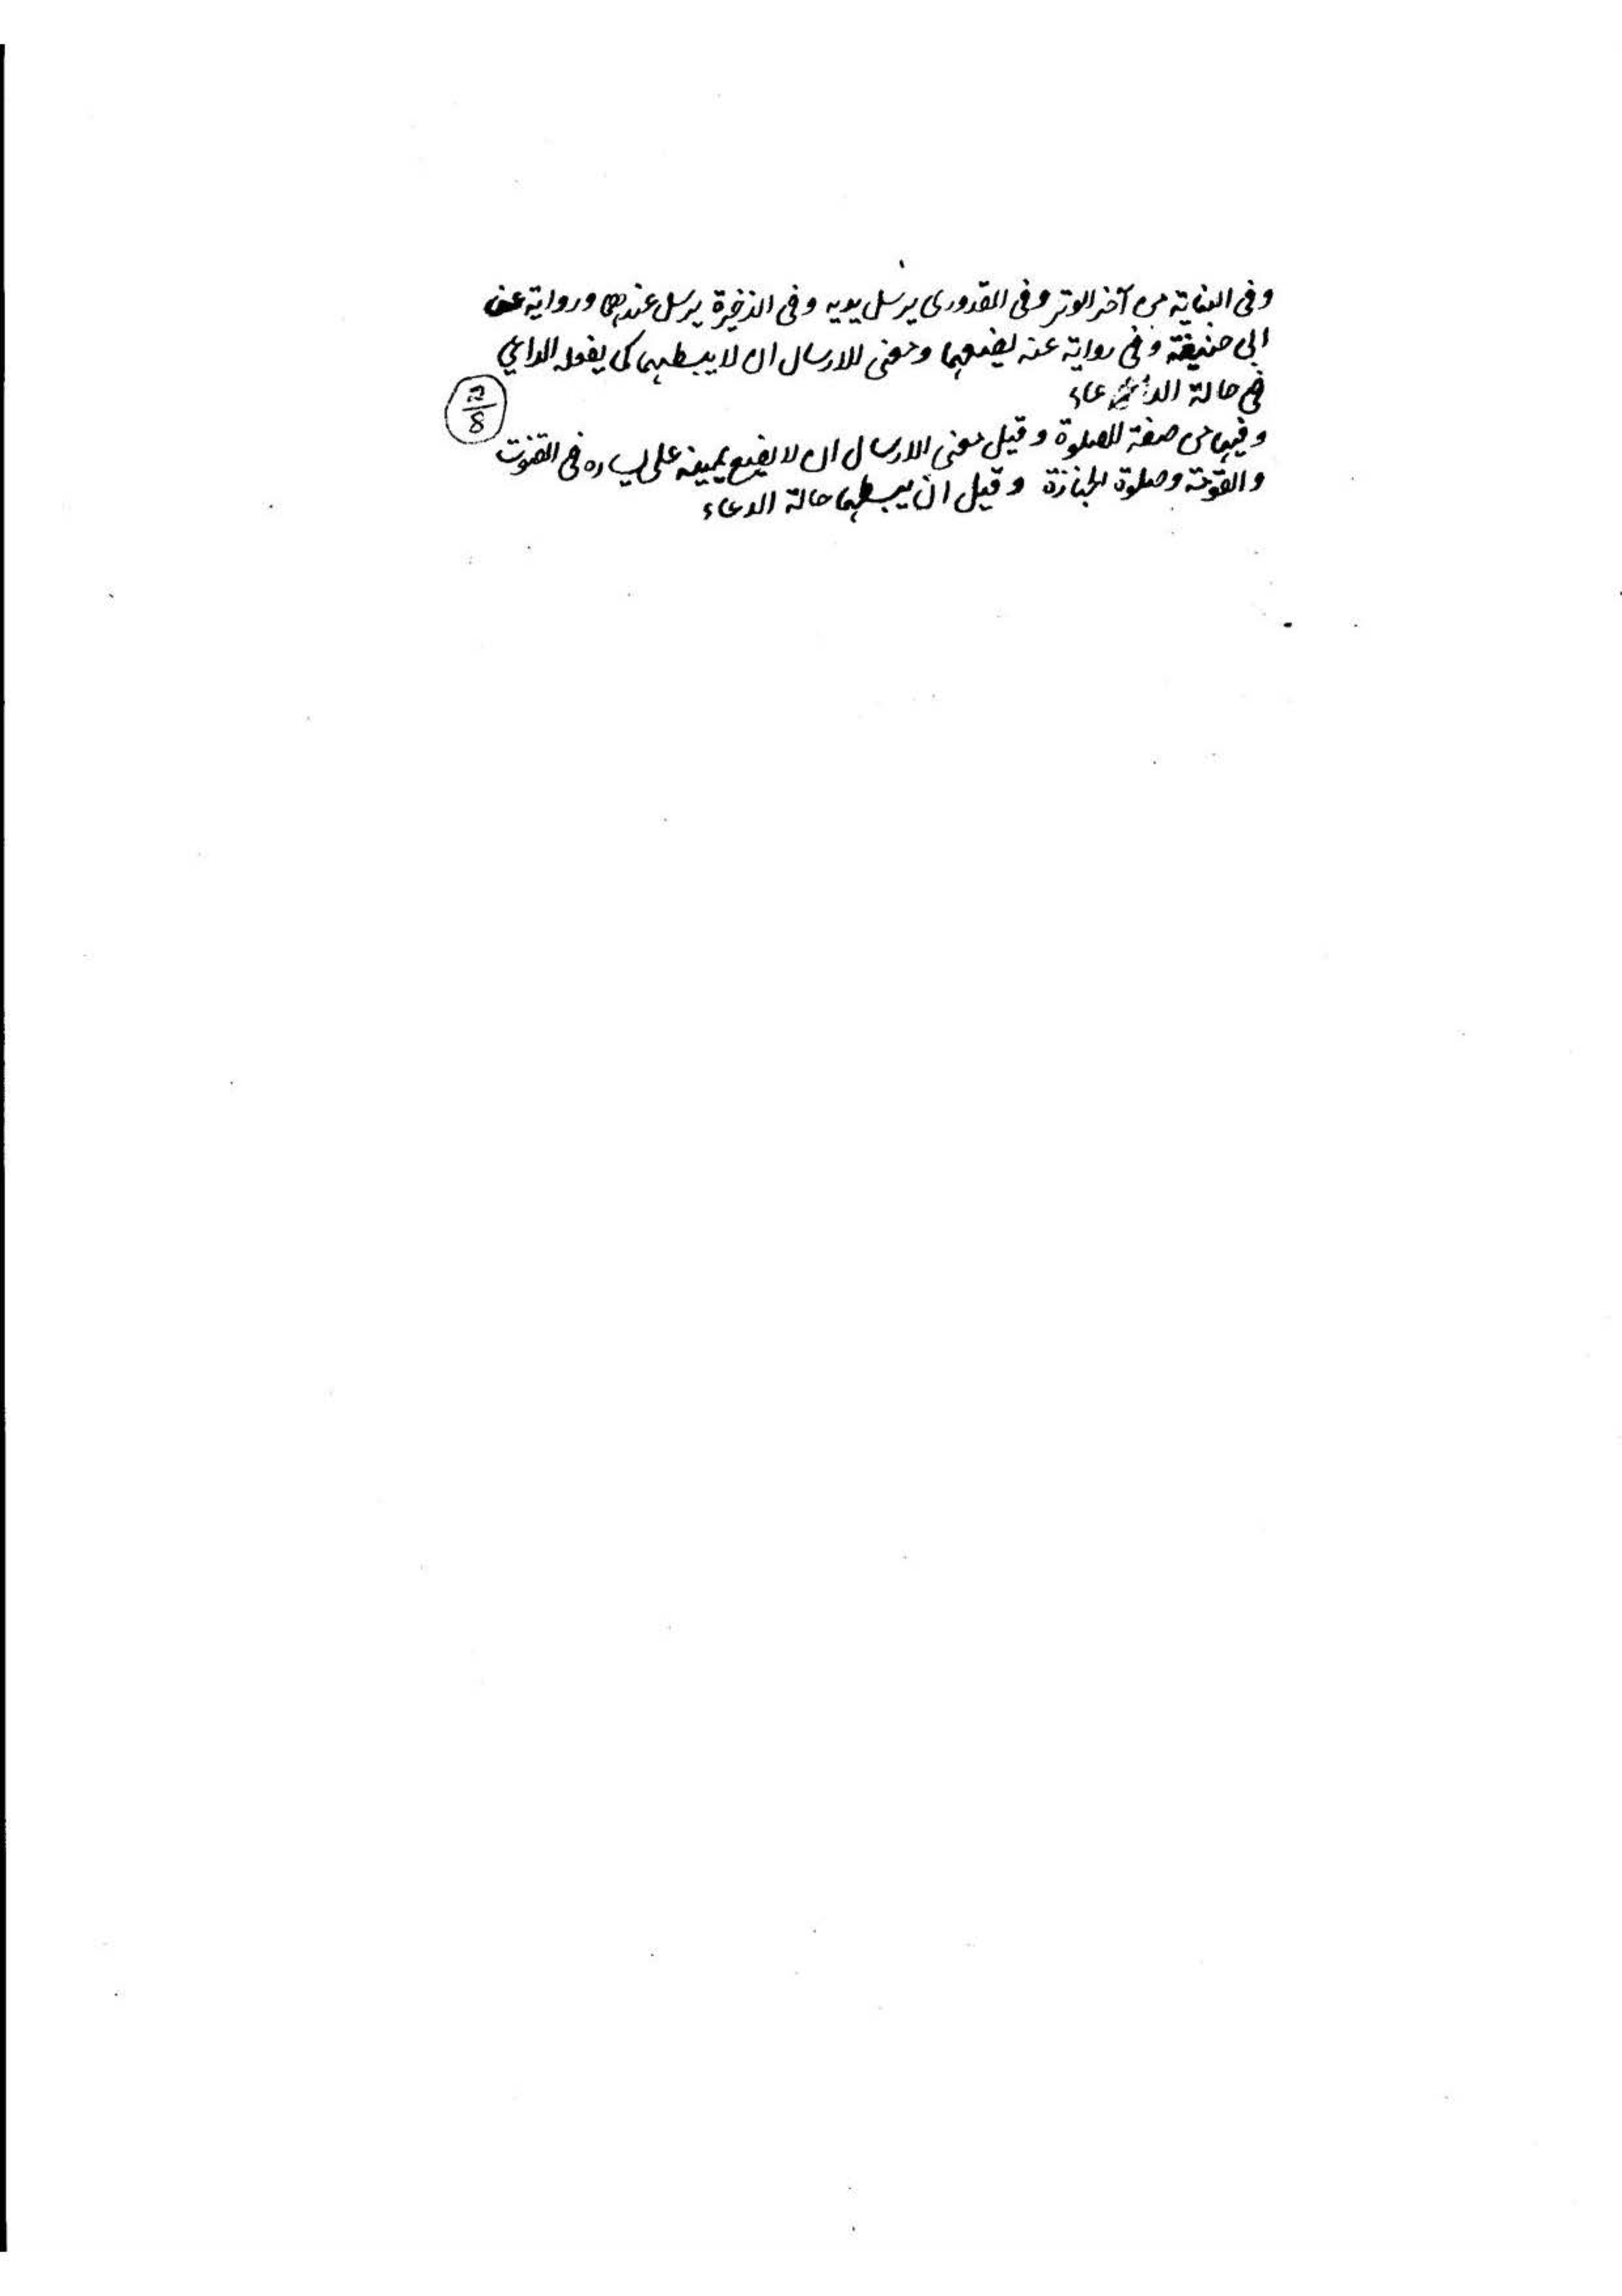 وفى البناية من آخر الوتر وفى القدورى يرسل يديه وفى الذخيرة يرسل عندهما ورواية عن
ابى حنيفة وفى رواية عنه يضعهما ومعنى الارسال ان لا يبسطهما كما يفعله الداعى
فى حالة الدعاء
وفيها من صفة الصلوة وقيل معنى الارسال ان لا يضع يمينه على يساره فى القنوت
والقومة وصلوة الجنازة وقيل ان يبسطهما حالة الدعاء